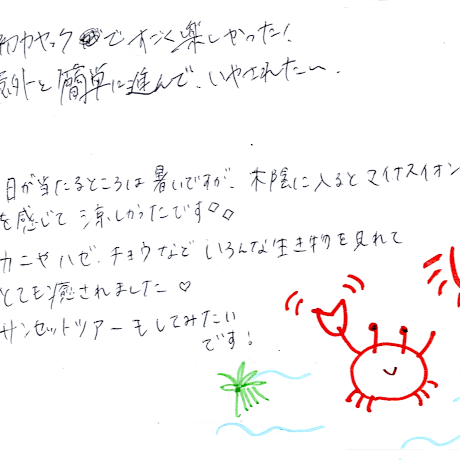 初カヤックですごく楽しかった!
意外と簡単に進んで、いやされた〜.
日が当たるところは暑いですが、木陰に入るとマイナスイオン
を感じて涼しかったです♢♢
カニやハゼ、チョウなどいろんな生き物を見れて
とても癒されました♡
サンセットツアーもしてみたい
です!